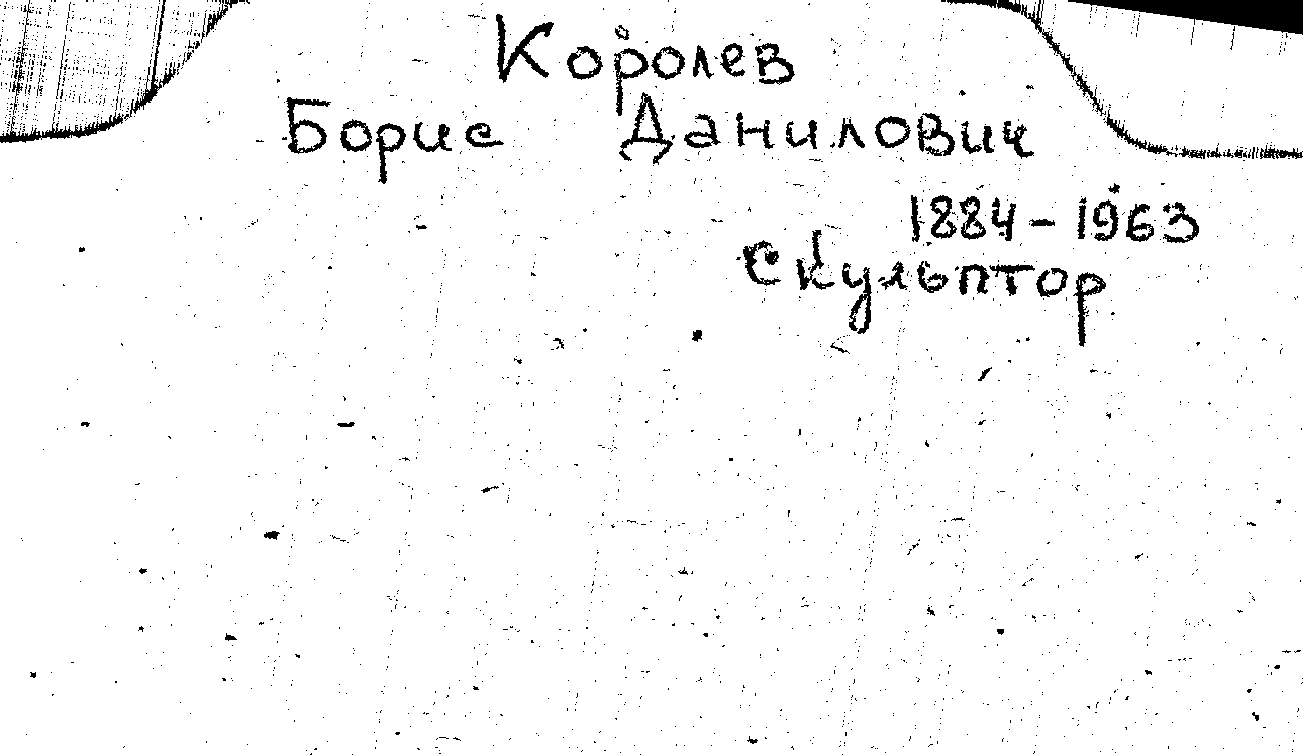 Королев
Борис Данилович
1884-1963
Скульптор